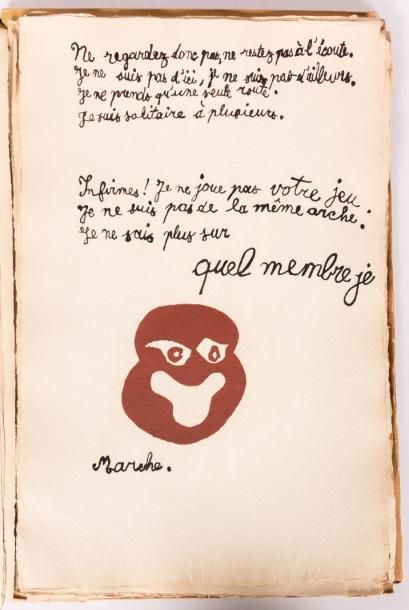 Ne regardez donc pas, ne restez pas à l'écoute.
Je ne suis pas d'ici, je ne suis pas d'ailleurs.
Je ne prends qu'une seule route.
Je suis solitaire à plusieurs.
Infirmes! Je ne joue pas votre jeu
Je ne suis pas de la même arche.
Je ne sais plus sur
quel membre je
Marche.